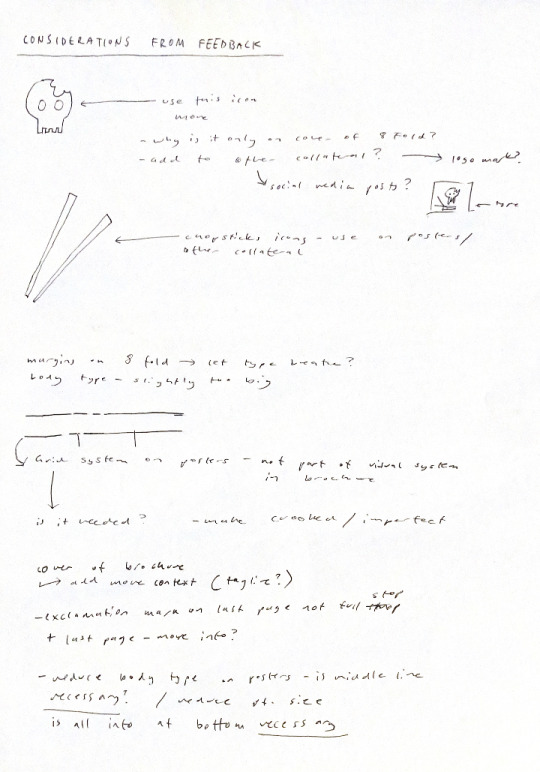 CONSIDERATIONS FROM FEEDBACK
use this icon
more
- why is it only on cover of 8 fold?
- add to other collateral? → logo mark?
↳ social media posts?
← type
chopsticks icons - use on posters/
other collateral
margins on 8 fold → let type breathe?
body type - slightly too big
Grid system on posters - not part of visual system
in brochure
is it needed? - make crooked / imperfect
cover of brochure
↳ add more context (tagline?)
- exclamation mark on last page not full stop
+ last page - more info?
- reduce body type on posters - is middle line
necessary? / reduce pt. size
is all info at bottom necessary